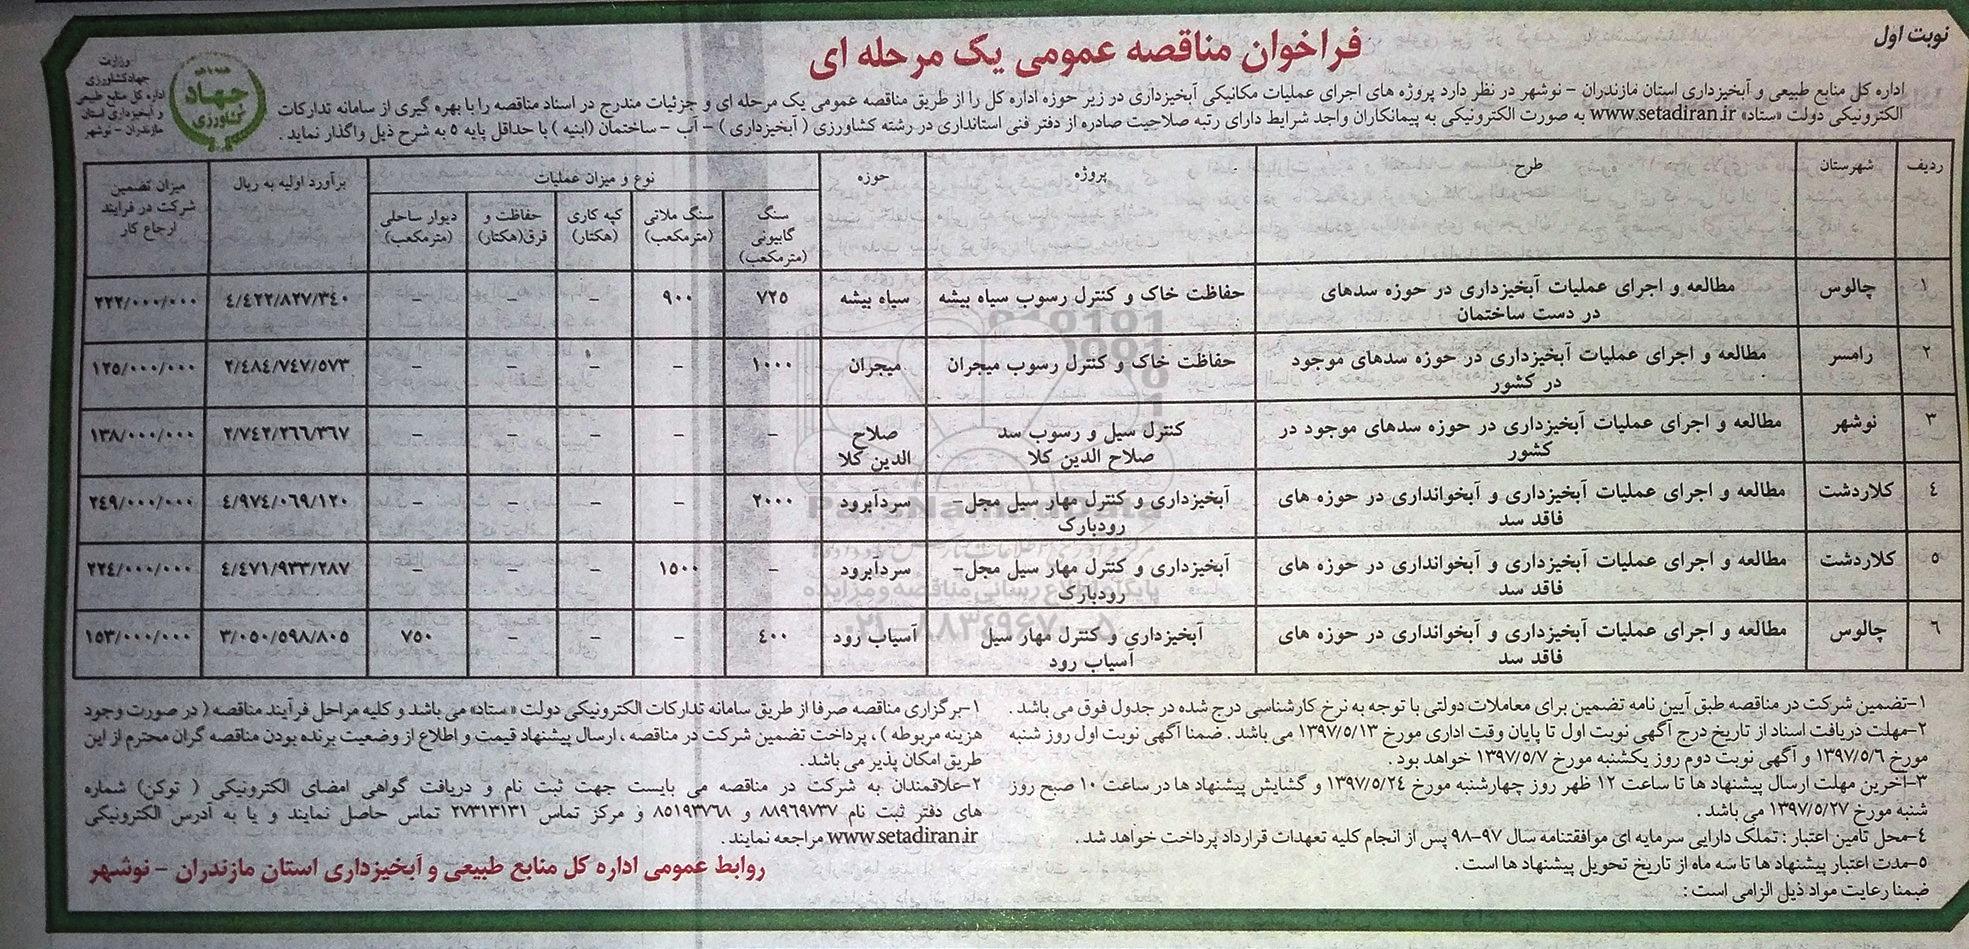 نوبت اول
فراخوان مناقصه عمومی یک مرحله ای
وزارت
جهادکشاورزی
اداره کل منابع طبیعی
و آبخیزداری استان
مازندران - نوشهر
جهاد
کشاورزی
اداره کل منابع طبیعی و آبخیزداری استان مازندران - نوشهر در نظر دارد پروژه های اجرای عملیات مکانیکی آبخیزداری در زیر حوزه اداره کل را از طریق مناقصه عمومی یک مرحله ای و جزئیات مندرج در اسناد مناقصه را با بهره گیری از سامانه تدارکات
الکترونیکی دولت «ستاد» www.setadiran.ir به صورت الکترونیکی به پیمانکاران واجد شرایط دارای رتبه صلاحیت صادره از دفتر فنی استانداری در رشته کشاورزی ( آبخیزداری ) - آب - ساختمان (ابنیه ) با حداقل پایه ٥ به شرح ذیل واگذار نماید .
ردیف شهرستان طرح پروژه حوزه نوع و میزان عملیات برآورد اولیه به ریال میزان تضمین شرکت در فرایند ارجاع کار
سنگ گابیونی (مترمکعب) سنگ ملاتی (مترمکعب) کپه کاری (هکتار) حفاظت و قرق(هکتار) دیوار ساحلی (مترمکعب)
١ چالوس مطالعه و اجرای عملیات آبخیزداری در حوزه سدهای در دست ساختمان حفاظت خاک و کنترل رسوب سیاه بیشه سیاه بیشه ٧٢٥ ٩٠٠ - - - ٤/٤٢٢/٨٢٧/٣٤٠ ٢٢٢/٠٠٠/٠٠٠
٢ رامسر مطالعه و اجرای عملیات آبخیزداری در حوزه سدهای موجود در کشور حفاظت خاک و کنترل رسوب میجران میجران ١٠٠٠ - - - - ٢/٤٨٤/٧٤٧/٥٧٣ ١٢٥/٠٠٠/٠٠٠
٣ نوشهر مطالعه و اجرای عملیات آبخیزداری در حوزه سدهای موجود در کشور کنترل سیل و رسوب سد صلاح الدین کلا صلاح الدین کلا - - - - - ٢/٧٤٢/٢٦٦/٣٦٧ ١٣٨/٠٠٠/٠٠٠
٤ کلاردشت مطالعه و اجرای عملیات آبخیزداری و آبخوانداری در حوزه های فاقد سد آبخیزداری و کنترل مهار سیل مجل- رودبارک سردآبرود ٢٠٠٠ - - - - ٤/٩٧٤/٠٦٩/١٢٠ ٢٤٩/٠٠٠/٠٠٠
٥ کلاردشت مطالعه و اجرای عملیات آبخیزداری و آبخوانداری در حوزه های فاقد سد آبخیزداری و کنترل مهار سیل مجل- رودبارک سردآبرود - ١٥٠٠ - - - ٤/٤٧١/٩٣٣/٢٨٧ ٢٢٤/٠٠٠/٠٠٠
٦ چالوس مطالعه و اجرای عملیات آبخیزداری و آبخوانداری در حوزه های فاقد سد آبخیزداری و کنترل مهار سیل آسیاب رود آسیاب رود ٤٠٠ - - - ٧٥٠ ٣/٠٥٠/٥٩٨/٨٠٥ ١٥٣/٠٠٠/٠٠٠
١-تضمین شرکت در مناقصه طبق آیین نامه تضمین برای معاملات دولتی با توجه به نرخ کارشناسی درج شده در جدول فوق می باشد .
٢-مهلت دریافت اسناد از تاریخ درج آگهی نوبت اول تا پایان وقت اداری مورخ ١٣٩٧/٥/١٣ می باشد . ضمنا آگهی نوبت اول روز شنبه
مورخ ١٣٩٧/٥/٦ و آگهی نوبت دوم روز یکشنبه مورخ ١٣٩٧/٥/٧ خواهد بود .
٣-آخرین مهلت ارسال پیشنهاد ها تا ساعت ١٢ ظهر روز چهارشنبه مورخ ١٣٩٧/٥/٢٤ و گشایش پیشنهاد ها در ساعت ١٠ صبح روز
شنبه مورخ ١٣٩٧/٥/٢٧ می باشد .
٤-محل تامین اعتبار : تملک دارایی سرمایه ای موافقتنامه سال ٩٧-٩٨ پس از انجام کلیه تعهدات قرارداد پرداخت خواهد شد .
٥-مدت اعتبار پیشنهاد ها تا سه ماه از تاریخ تحویل پیشنهاد ها است .
ضمنا رعایت مواد ذیل الزامی است :
١-برگزاری مناقصه صرفا از طریق سامانه تدارکات الکترونیکی دولت «ستاد» می باشد و کلیه مراحل فرآیند مناقصه ( در صورت وجود
هزینه مربوطه ) ، پرداخت تضمین شرکت در مناقصه ، ارسال پیشنهاد قیمت و اطلاع از وضعیت برنده بودن مناقصه گران محترم از این
طریق امکان پذیر می باشد .
٢-علاقمندان به شرکت در مناقصه می بایست جهت ثبت نام و دریافت گواهی امضای الکترونیکی ( توکن) شماره
های دفتر ثبت نام ٨٨٩٦٩٧٣٧ و ٨٥١٩٣٧٦٨ و مرکز تماس ٢٧٣١٣١٣١ تماس حاصل نمایند و یا به آدرس الکترونیکی
www.setadiran.ir مراجعه نمایند .
روابط عمومی اداره کل منابع طبیعی و آبخیزداری استان مازندران - نوشهر
پایگاه اطلاع رسانی مناقصه و مزایده
٠٢١-٨٨٣٤٩٦٧٠-٥